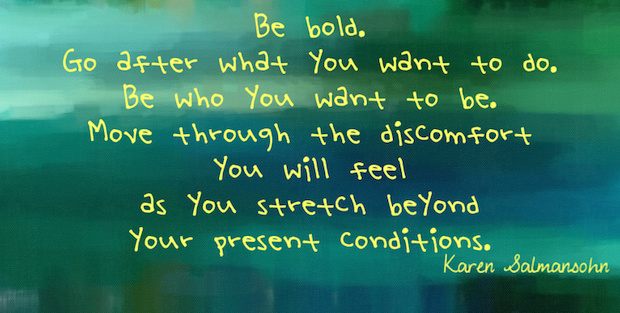 Be bold.
Go after what You want to do.
Be who You want to be.
Move through the discomfort
You will feel
as You stretch beyond
Your present conditions.
Karen Salmansohn